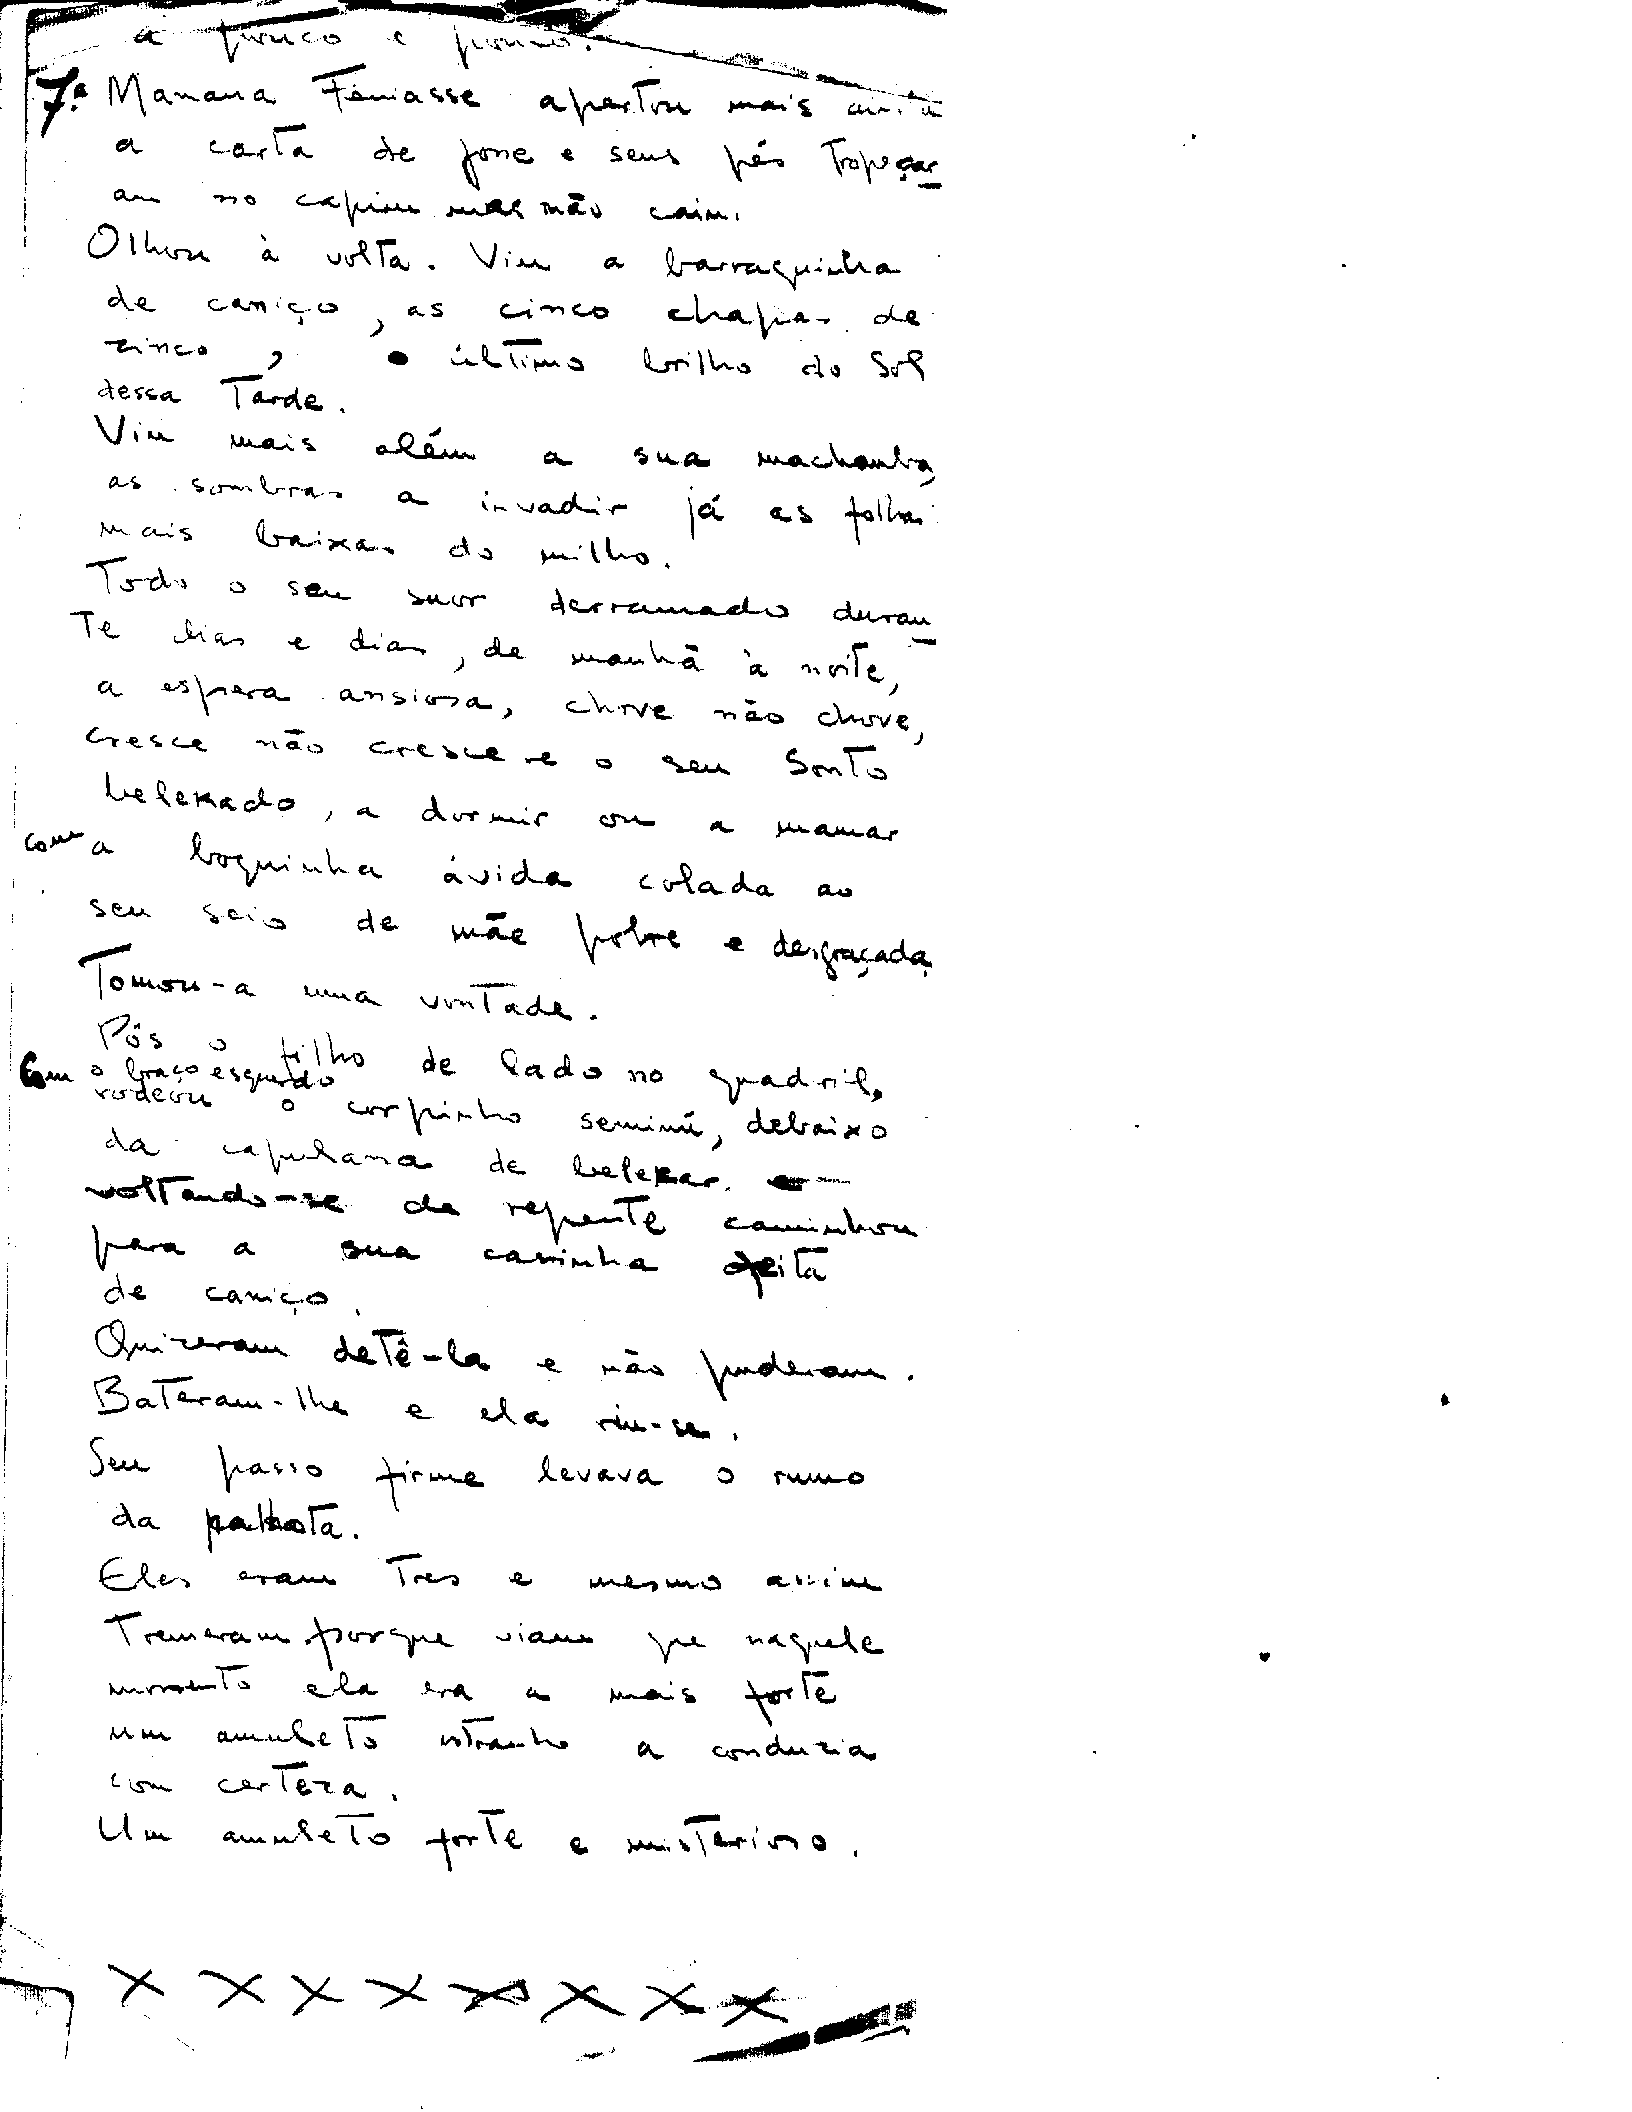 a pouco e pouco.
7ª Mamana Féniasse apertou mais ainda
a carta de Jone e seus pés tropeçar
am no capim mas não caiu.
Olhou à volta. Viu a barraquinha
de caniço, as cinco chapas de
zinco, o último brilho do Sol
dessa Tarde.
Viu mais além a sua machamba,
as sombras a invadir já as folhas
mais baixas do milho.
Todo o seu suor derramado duran
te dias e dias, de manhã à noite,
a espera ansiosa, chove não chove,
cresce não cresce e o seu Sonto
belekado, a dormir ou a mamar
com a boquinha ávida colada ao
seu seio de mãe pobre e desgraçada
Tomou-a uma vontade.
Pôs o filho de lado no quadril,
Com o braço esquerdo
rodeou o corpinho seminú, debaixo
da capulana de belekar. e
voltando-se de repente caminhou
para a sua casinha feita
de caniço.
Quizeram detê-la e não puderam.
Bateram-lhe e ela riu-se.
Seu passo firme levava o rumo
da palhota.
Eles eram Tres e mesmo assim
Tremeram porque viam que naquele
momento ela era a mais forte
um amuleto estranho a conduzia
com certeza.
Um amuleto forte e misterioso.
X X X X X X X X